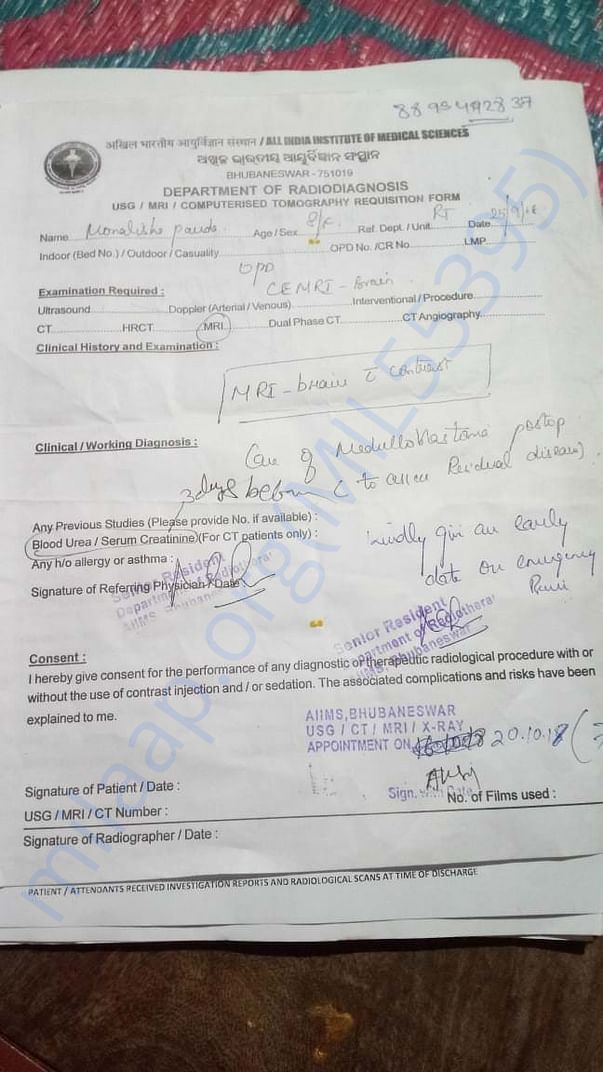 8895492837
अखिल भारतीय आयुर्विज्ञान संस्थान / ALL INDIA INSTITUTE OF MEDICAL SCIENCES
ଅଖିଳ ଭାରତୀୟ ଆୟୁର୍ବିଜ୍ଞାନ ସଂସ୍ଥାନ
BHUBANESWAR - 751019
DEPARTMENT OF RADIODIAGNOSIS
USG / MRI / COMPUTERISED TOMOGRAPHY REQUISITION FORM
Name Monalisha panda Age / Sex 8/F Ref. Dept. / Unit RT Date 25/9/18
Indoor (Bed No.) / Outdoor / Casualty OPD No. /CR No LMP
OPD
Examination Required : CEMRI - Brain
Ultrasound Doppler (Arterial / Venous) Interventional / Procedure
CT HRCT MRI Dual Phase CT CT Angiography
Clinical History and Examination :
MRI - brain c contrast
Clinical / Working Diagnosis :
Case of Medulloblastoma postop
3 days before ( to assess Residual disease)
Any Previous Studies (Please provide No. if available) :
Blood Urea / Serum Creatinine)(For CT patients only) :
Kindly give an early
Any h/o allergy or asthma :
date on emergency
Signature of Referring Physician / Date
Senior Resident
Department of Radiotherapy
AIIMS, Bhubaneswar
Senior Resident
Department of Radiotherapy
AIIMS, Bhubaneswar
Consent :
I hereby give consent for the performance of any diagnostic or therapeutic radiological procedure with or
without the use of contrast injection and / or sedation. The associated complications and risks have been
explained to me.
AIIMS, BHUBANESWAR
USG / CT / MRI / X-RAY
APPOINTMENT ON 20.10.18
Signature of Patient / Date :
Sign. with Date
No. of Films used :
USG / MRI / CT Number :
Signature of Radiographer / Date :
PATIENT / ATTENDANTS RECEIVED INVESTIGATION REPORTS AND RADIOLOGICAL SCANS AT TIME OF DISCHARGE
milaap.org(MIL55395)